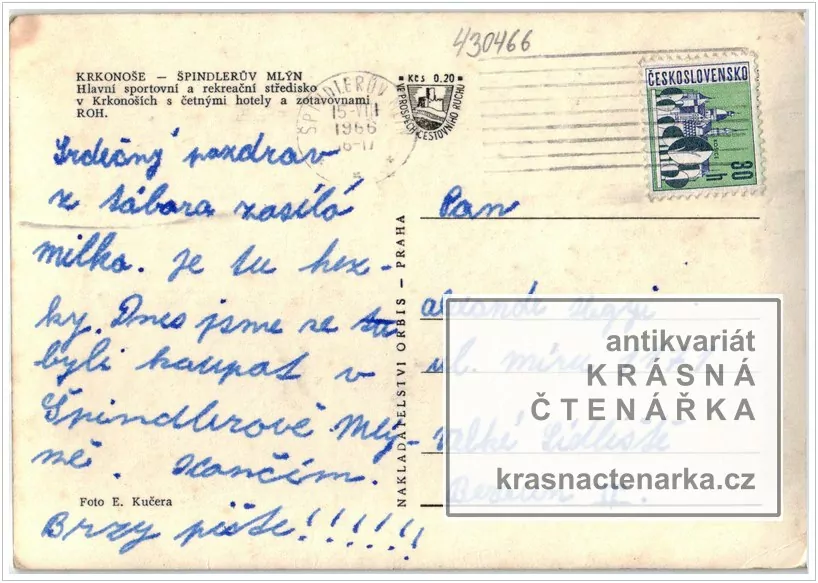 430466
KRKONOŠE — ŠPINDLERŮV MLÝN
Hlavní sportovní a rekreační středisko
v Krkonoších s četnými hotely a zotavovnami
ROH.
ŠPINDLERŮV
15-VIII
1966
16-17
Kčs 0.20
VE PROSPĚCH CESTOVNÍHO RUCHU
ČESKOSLOVENSKO
30 h
Srdečný pozdrav
z tábora zasílá
milka. je tu hez-
ky. Dnes jsme se tu
byli koupat v
Špindlerově Mlý-
ně. Končím.
Brzy pište!!!!!!
Foto E. Kučera
NAKLADATELSTVÍ ORBIS — PRAHA
Pan
ul. míru
Sídliště
antikvariát
KRÁSNÁ
ČTENÁŘKA
krasnactenarka.cz